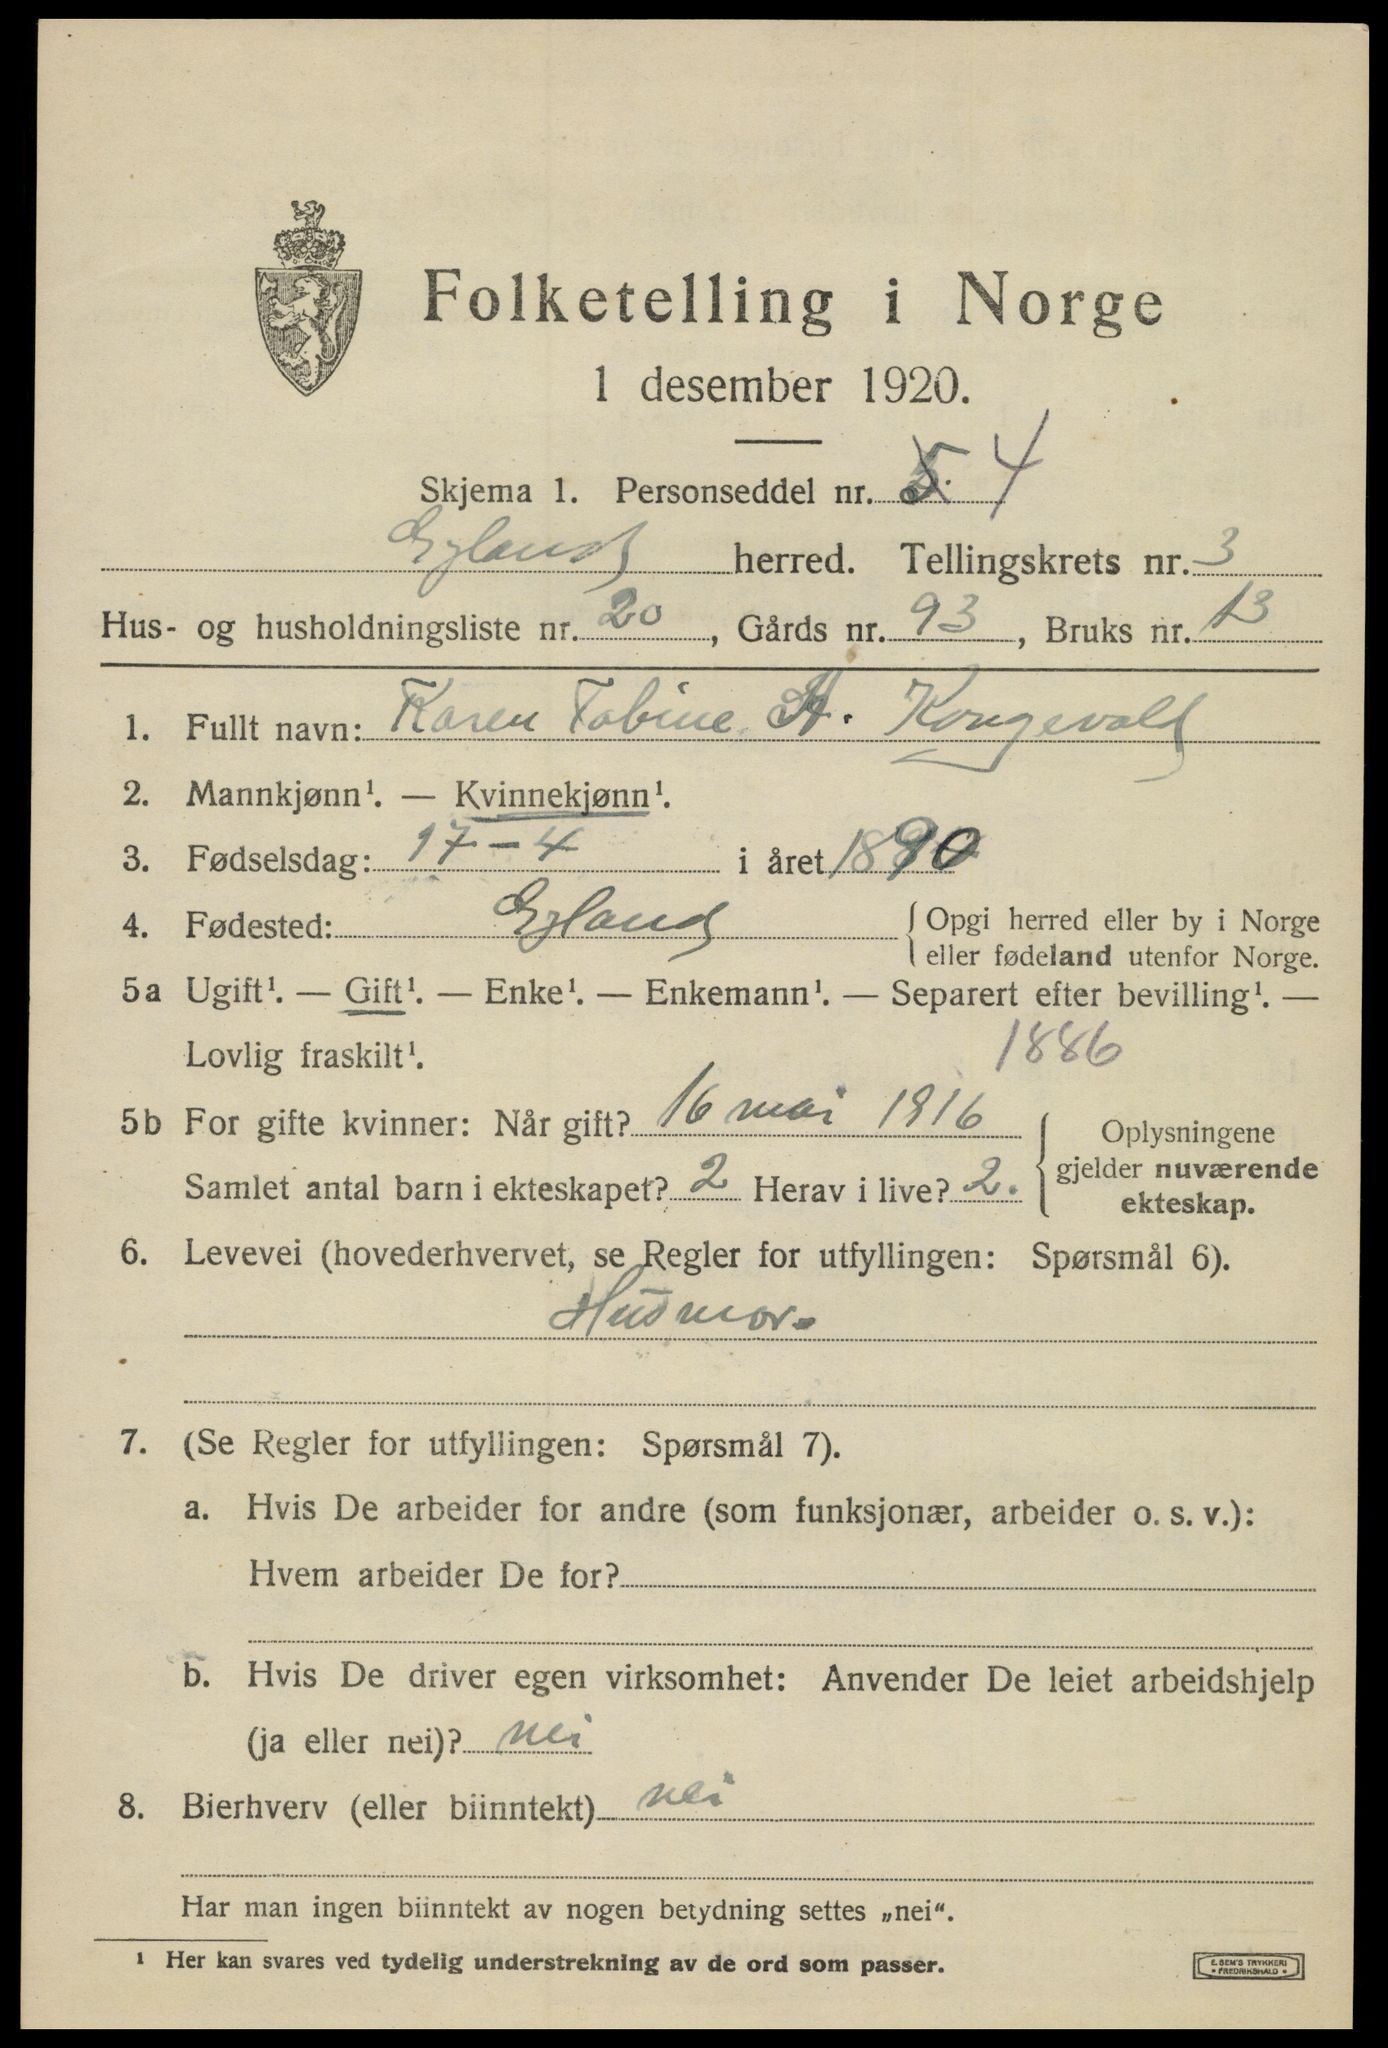 Folketelling i Norge
1 desember 1920.
Skjema 1. Personseddel nr. 5. 4
Eyland herred. Tellingskrets nr. 3
Hus- og husholdningsliste nr. 20, Gårds nr. 93, Bruks nr. 13
1. Fullt navn: Karen Tobine A. Kongevold
2. Mannkjønn¹. — Kvinnekjønn¹.
3. Fødselsdag: 17-4 i året 1890
4. Fødested: Eyland { Opgi herred eller by i Norge
eller fødeland utenfor Norge.
5a Ugift¹. — Gift¹. — Enke¹. — Enkemann¹. — Separert efter bevilling¹. —
Lovlig fraskilt¹. 1886
5b For gifte kvinner: Når gift? 16 mai 1916 { Oplysningene
gjelder nuværende
ekteskap.
Samlet antal barn i ekteskapet? 2 Herav i live? 2.
6. Levevei (hovederhvervet, se Regler for utfyllingen: Spørsmål 6).
Husmor.
7. (Se Regler for utfyllingen: Spørsmål 7).
a. Hvis De arbeider for andre (som funksjonær, arbeider o. s. v.):
Hvem arbeider De for?
b. Hvis De driver egen virksomhet: Anvender De leiet arbeidshjelp
(ja eller nei)? nei
8. Bierhverv (eller biinntekt) nei
Har man ingen biinntekt av nogen betydning settes „nei“.
¹ Her kan svares ved tydelig understrekning av de ord som passer.
E. SEM'S TRYKKERI
• FREDRIKSHALD •